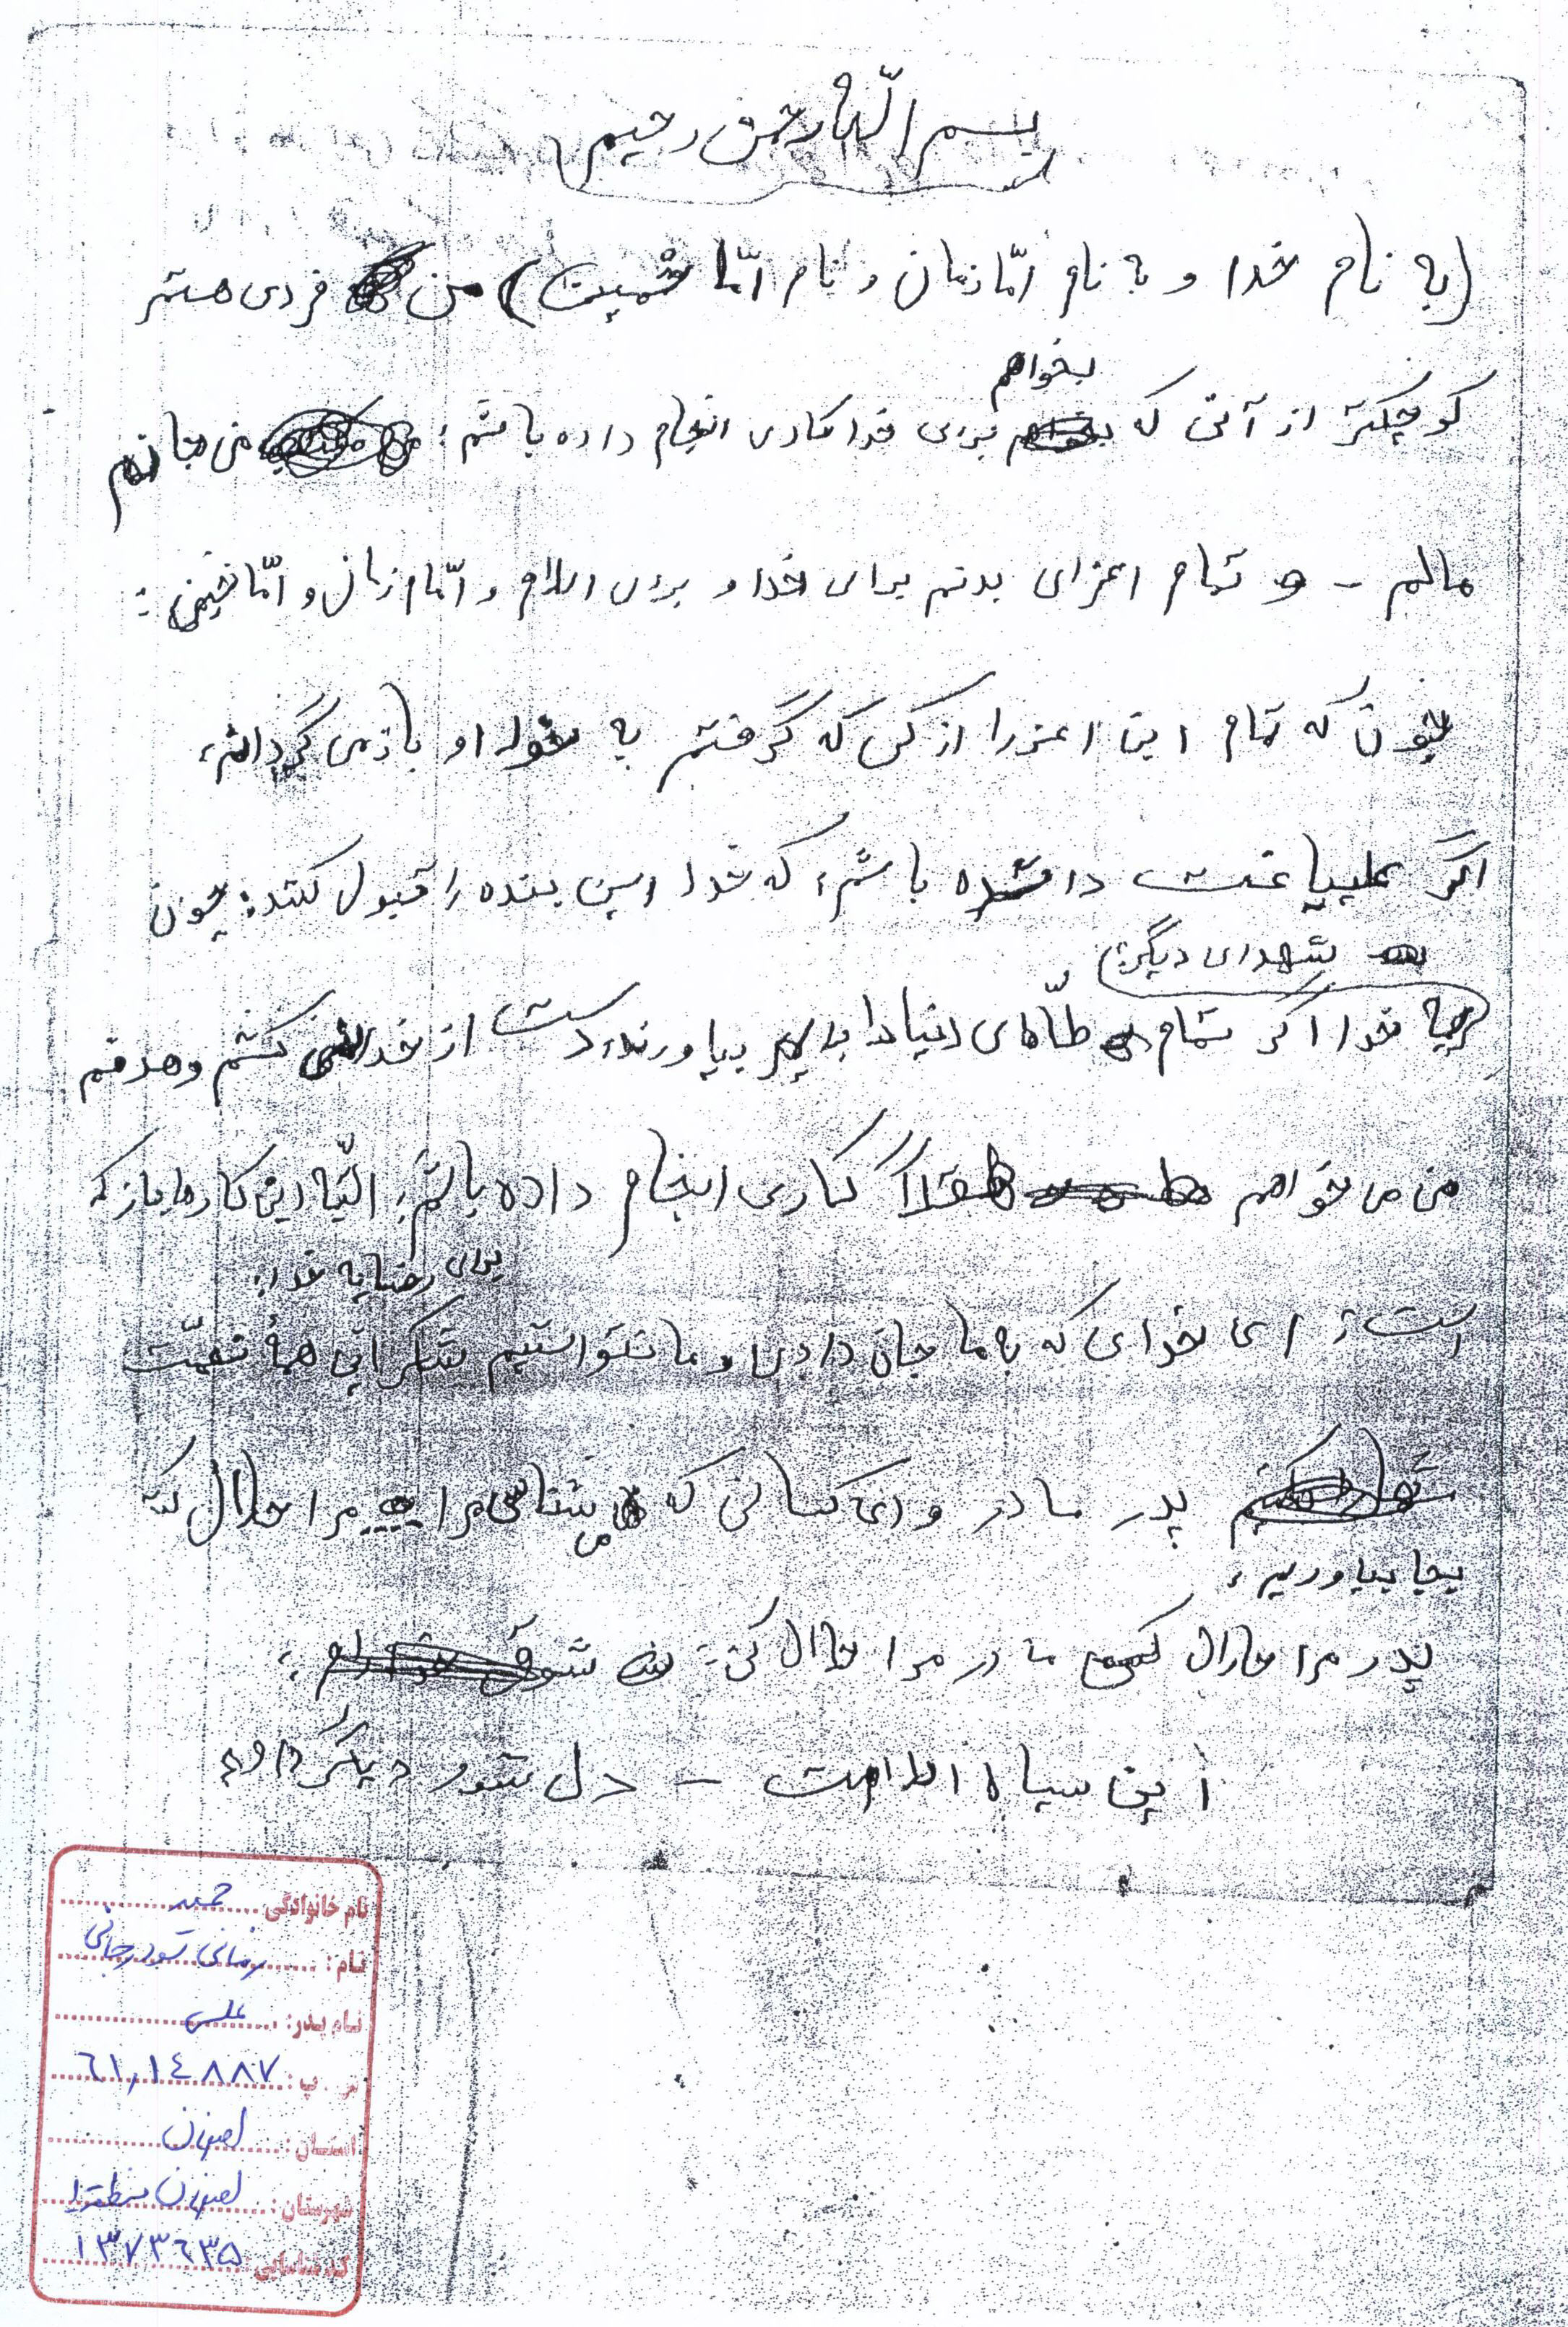 بسم اللّه رحمن رحیم
(به نام خدا و به نام امّا زمان و نام امّا خمینی) من فردی هستم
بخواهم
کوچکتر از آنی که برای خدا کاری انجام داده باشم؛ من جانم
مالم - و تمام اعزای بدنم برای خدا و برای اسلام و امّام زمان و امّا خمینی:
چون که تمام این اعزرا از کی که گرفتم به خود او باز می گردانم،
اگر داشته باشم، که خدا این بنده را قبول کند: چون
شهدای دیگر؛
خدا اگر تمام طلّاهای دنیا را بیاورند دست از خدا نمی کشم و هدفم
من می خواهم کاری انجام داده باشم؛ این کارها باز که
برای رضایه خدا؛
است؛ ای خدای که به ما جان دادی و ما نتوانستیم شکر این همهٔ نعمّت
پدر مادر و ای کسانی که می شناسی مرا مرا حلال کند
بجا بیاوریم،
پدر مرا حلال کن مادر مرا حلال کن:
این سیاه - دل شور دیگر دارد
نام خانوادگی: حمید
نام: رمضانی سودرجانی
نام پدر: علی
م . پ: ٦١,١٤٨٨٧
استان: اصفهان
شهرستان: اصفهان منطقه ۱
کد شناسایی ١٣٧٣٦٣٥